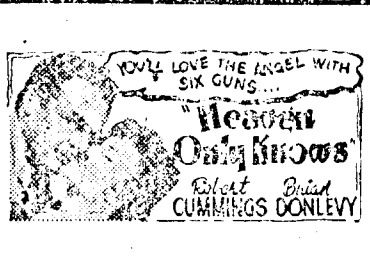 YOU'LL LOVE THE ANGEL WITH
SIX GUNS....
"Heaven
Only Knows"
Robert Brian
CUMMINGS DONLEVY